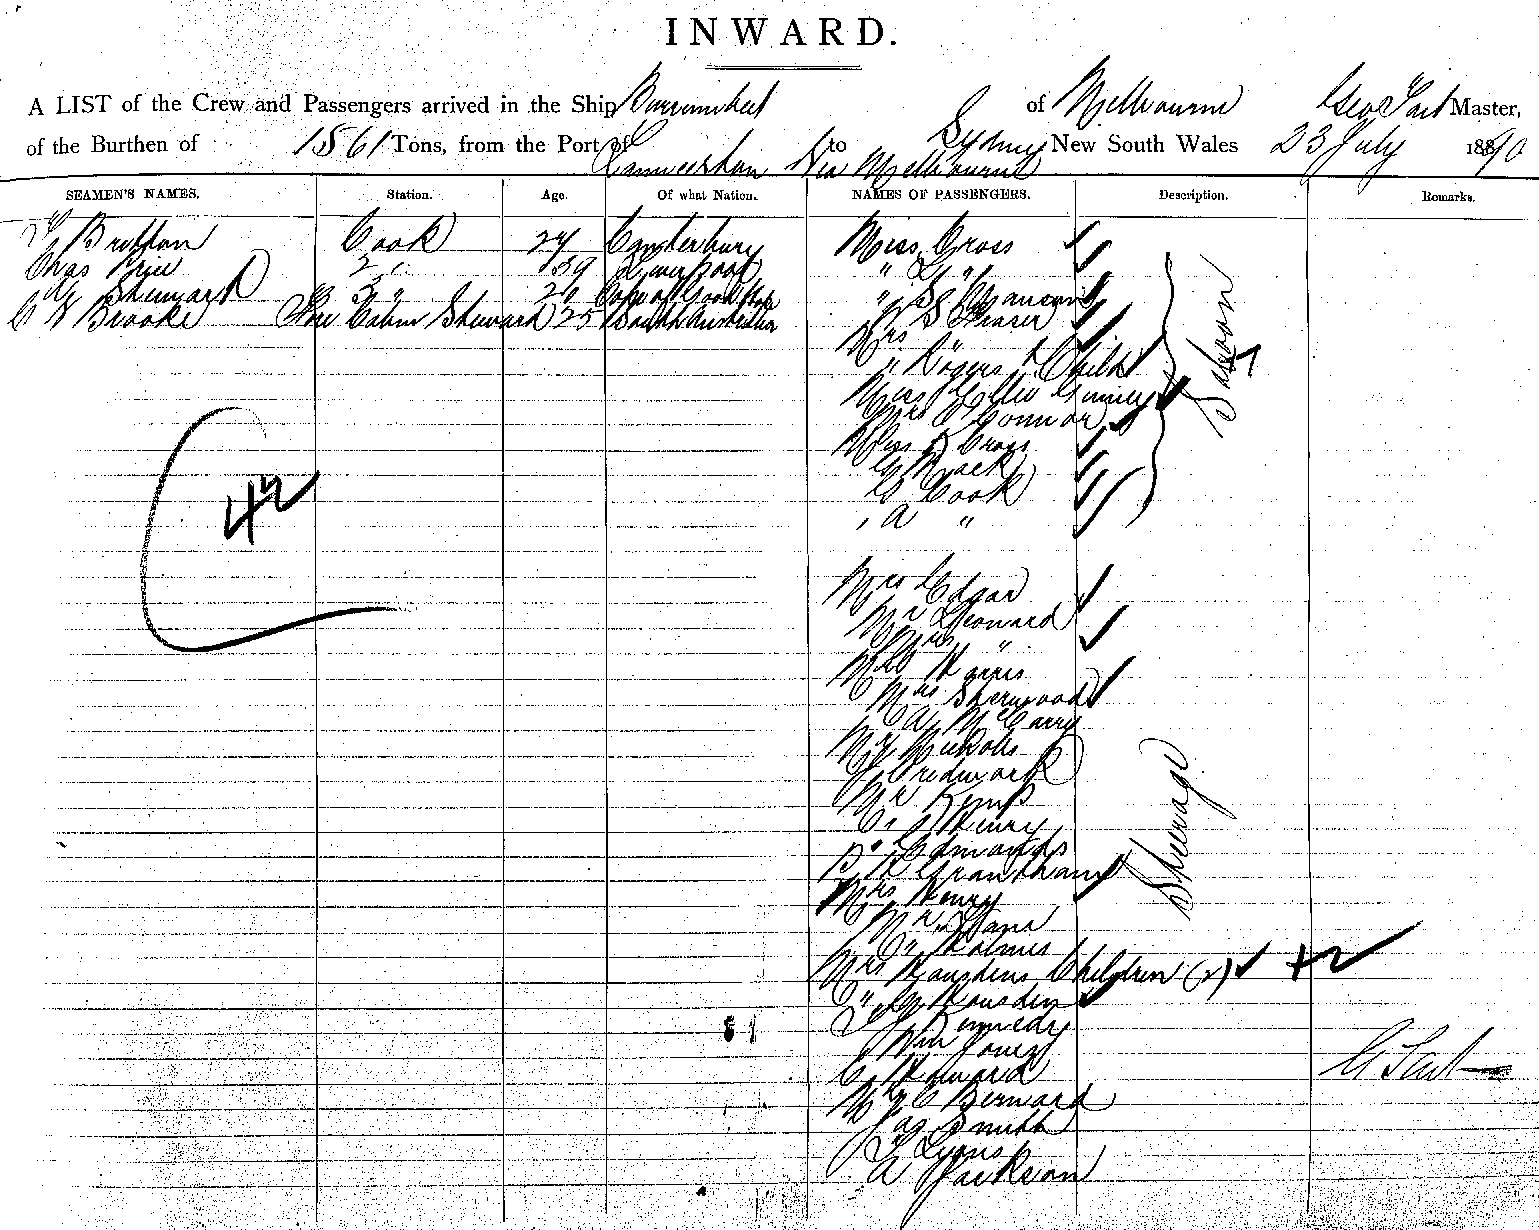 INWARD.
A LIST of the Crew and Passengers arrived in the Ship Burrumbeet of Melbourne Geo Tait Master,
of the Burthen of 1561 Tons, from the Port of Launceston Via Melbourne to Sydney New South Wales 23 July 1890
SEAMEN'S NAMES. Station. Age. Of what Nation. NAMES OF PASSENGERS. Description. Remarks.
Britton Cook 24 Canterbury Miss Cross
Chas Price 2 " 39 Liverpool " "
Steward 3 " 20 Cape of Good Hope "
C W Brooke Fore Cabin Steward 25 South Australian " S Frazer
Mrs "
" Rogers & Child
Miss
Mrs O'Connor
Miss Cross
Mack
G Cook
" A "
Saloon
42
Mrs Edgar
Mr Leonard
Mrs "
Harris
Mrs Sherwood
A McCarry
Mr Nicholls
Mr Kemp
Henry
Edmonds
Grantham
Mrs Henry
Mr
" Holmes
Mrs Rousdens Children (2) +2
" Rousden
Kennedy
Wm Jones
C Howard
Bernard
Jas Smith
T Lyons
A Jackson
Steerage
G Tait